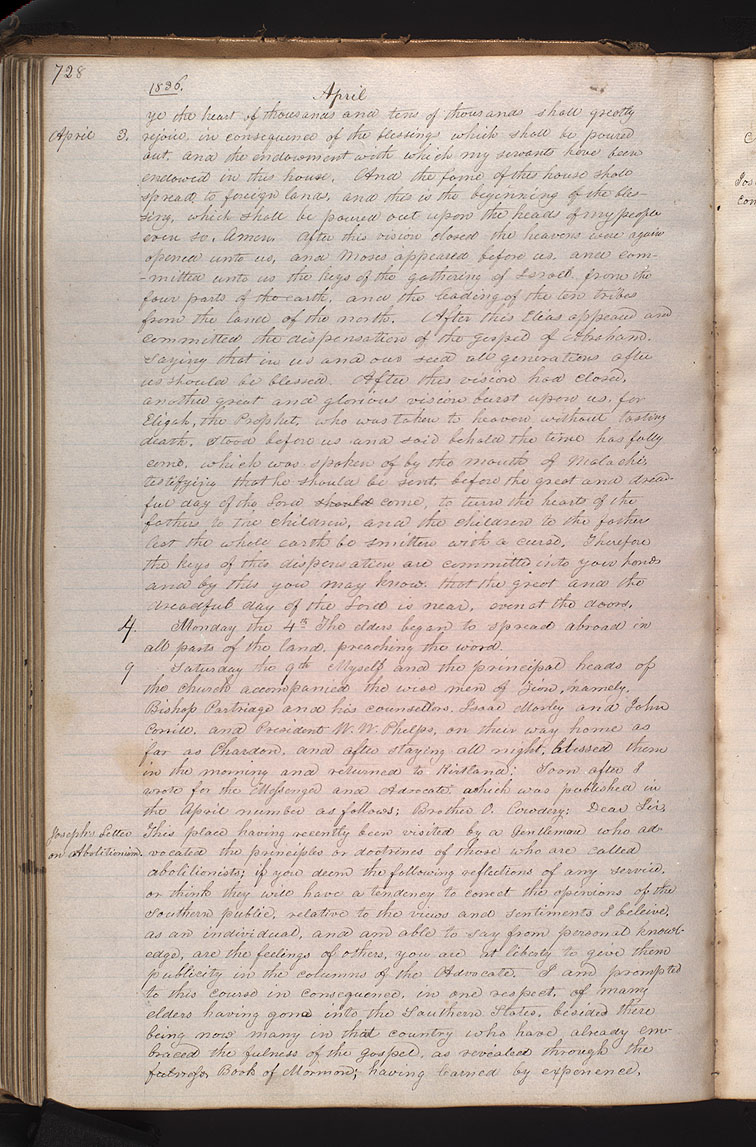 728
1836.
April
ye the heart of thousands and tens of thousands shall greatly
April 3. rejoice in consequence of the blessings which shall be poured
out, and the endowment with which my servants have been
endowed in this house. And the fame of this house shall
spread to foreign lands, and this is the beginning of the bles-
sing, which shall be poured out upon the heads of my people
even so, Amen. After this vision closed the heavens were again
opened unto us, and Moses appeared before us, and com-
-mitted unto us the keys of the gathering of Israel from the
four parts of the earth, and the leading of the ten tribes
from the land of the north. After this Elias appeared and
committed the dispensation of the gospel of Abraham,
saying that in us and our seed all generations after
us should be blessed. After this vision had closed,
another great and glorious vision burst upon us, for
Elijah, the Prophet, who was taken to heaven without tasting
death, stood before us and said behold the time has fully
come, which was spoken of by the mouth of Malachi,
testifying that he should be sent before the great and dread-
ful day of the Lord should come, to turn the hearts of the
fathers to the children, and the children to the fathers
lest the whole earth be smitten with a curse. Therefore
the keys of this dispensation are committed into your hands
and by this you may know that the great and the
dreadful day of the Lord is near, even at the doors.
4. Monday the 4th The elders began to spread abroad in
all parts of the land, preaching the word.
9 Saturday the 9th Myself and the principal heads of
the church accompanied the wise men of Zion, namely,
Bishop Partridge and his counsellors, Isaac Morley and John
Corrill, and President W. W. Phelps, on their way home as
far as Chardon, and after staying all night, blessed them
in the morning and returned to Kirtland: Soon after I
wrote for the Messenger and Advocate which was published in
the April number as follows; Brother O. Cowdery: Dear Sir,
Joseph's Letter This place having recently been visited by a Gentleman who ad-
on Abolitionism. vocated the principles or doctrines of those who are called
abolitionists; if you deem the following reflections of any service,
or think they will have a tendency to correct the opinions of the
Southern public, relative to the views and sentiments I beleive,
as an individual, and am able to say from personal knowl-
edge, are the feelings of others, you are at liberty to give them
publicity in the columns of the Advocate. I am prompted
to this course in consequence, in one respect, of many
elders having gone into the Southern States, besides there
being now many in that country who have already em-
braced the fulness of the gospel, as revealed through the
Book of Mormon; having learned by experience,